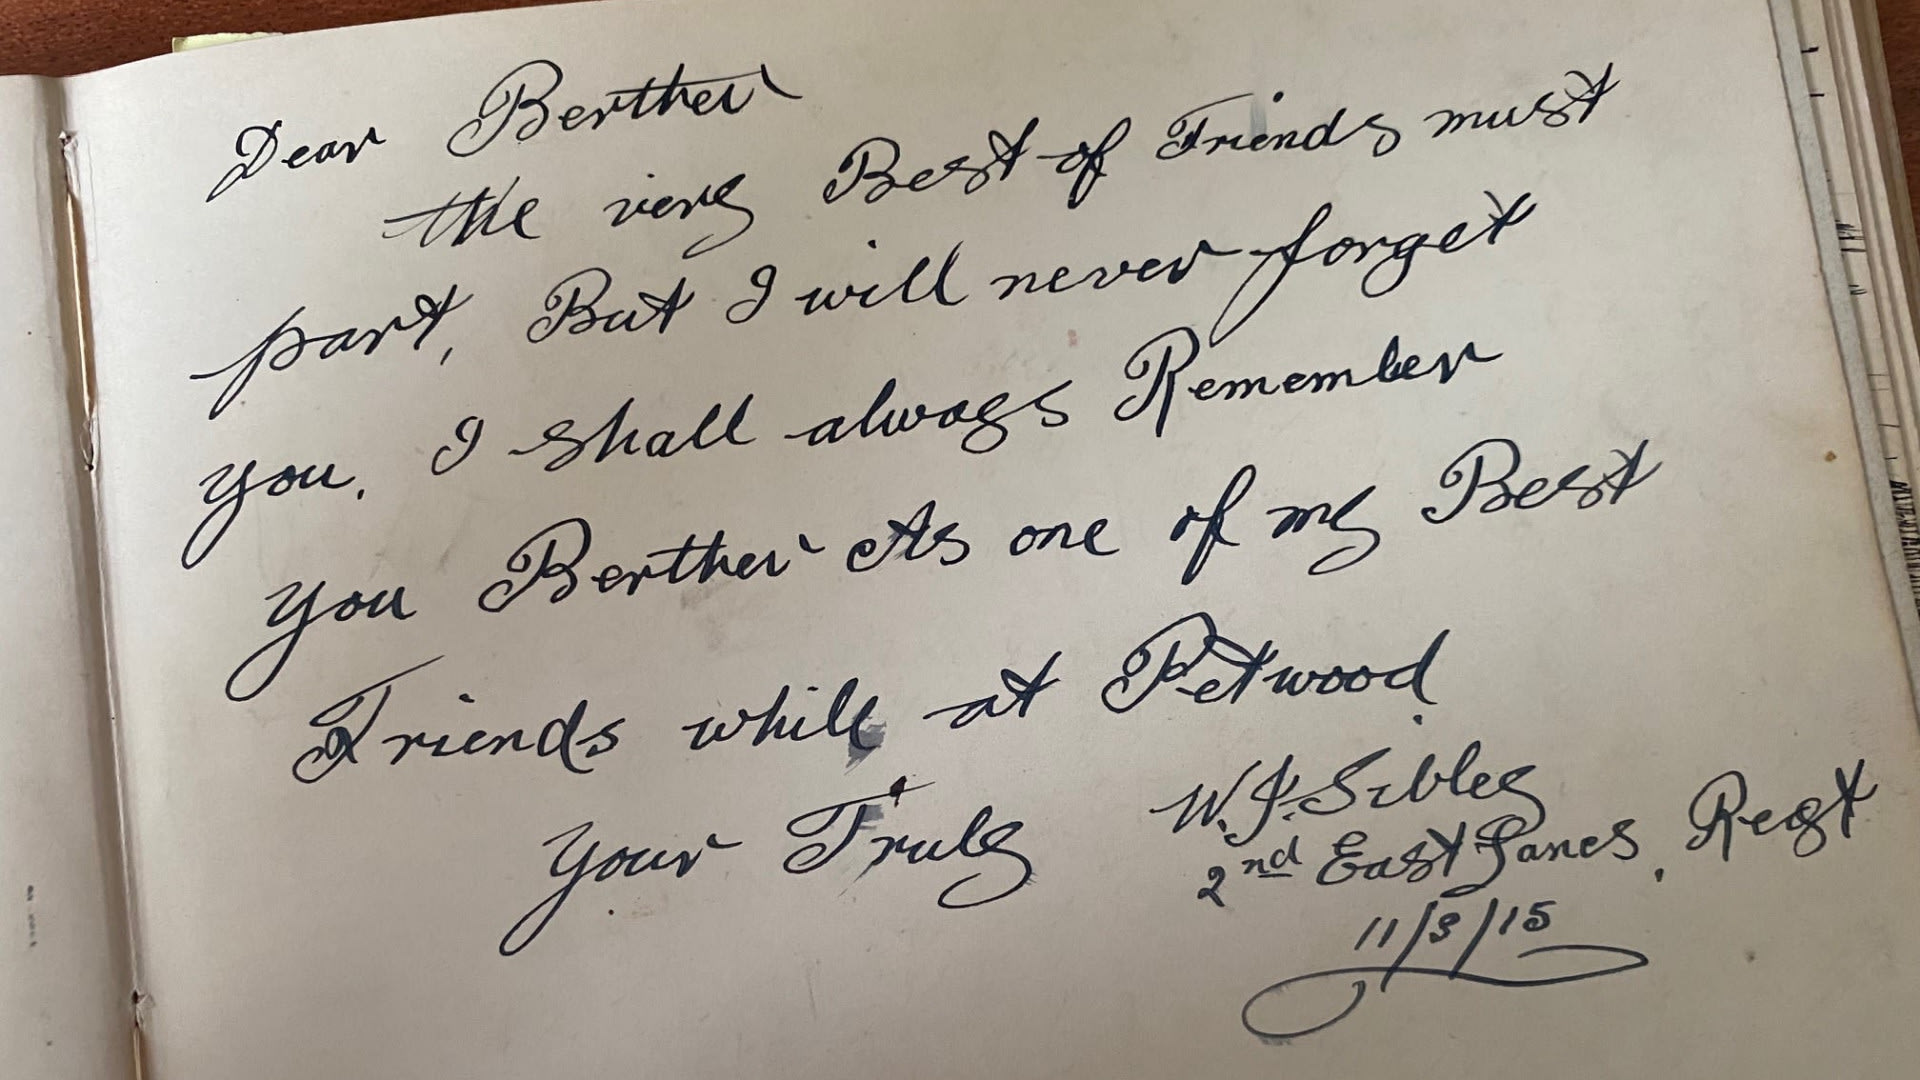 Dear Berther
the very Best of Friends must
part, But I will never forget
you. I shall always Remember
you Berther As one of my Best
Friends while at Petwood.
Your Truly
W. J. Sibley
2nd East Lancs. Regt
11/3/15